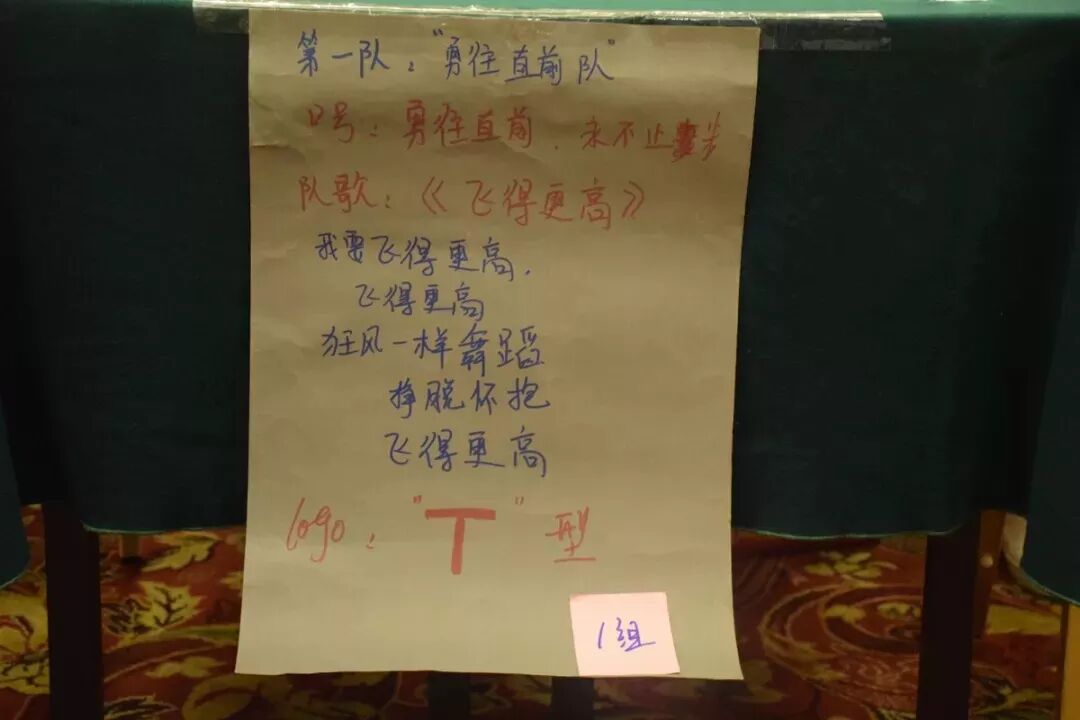 第一队："勇往直前队"
口号：勇往直前．永不止步
队歌：《飞得更高》
我要飞得更高．
飞得更高
狂风一样舞蹈
挣脱怀抱
飞得更高
logo："T"型
1组